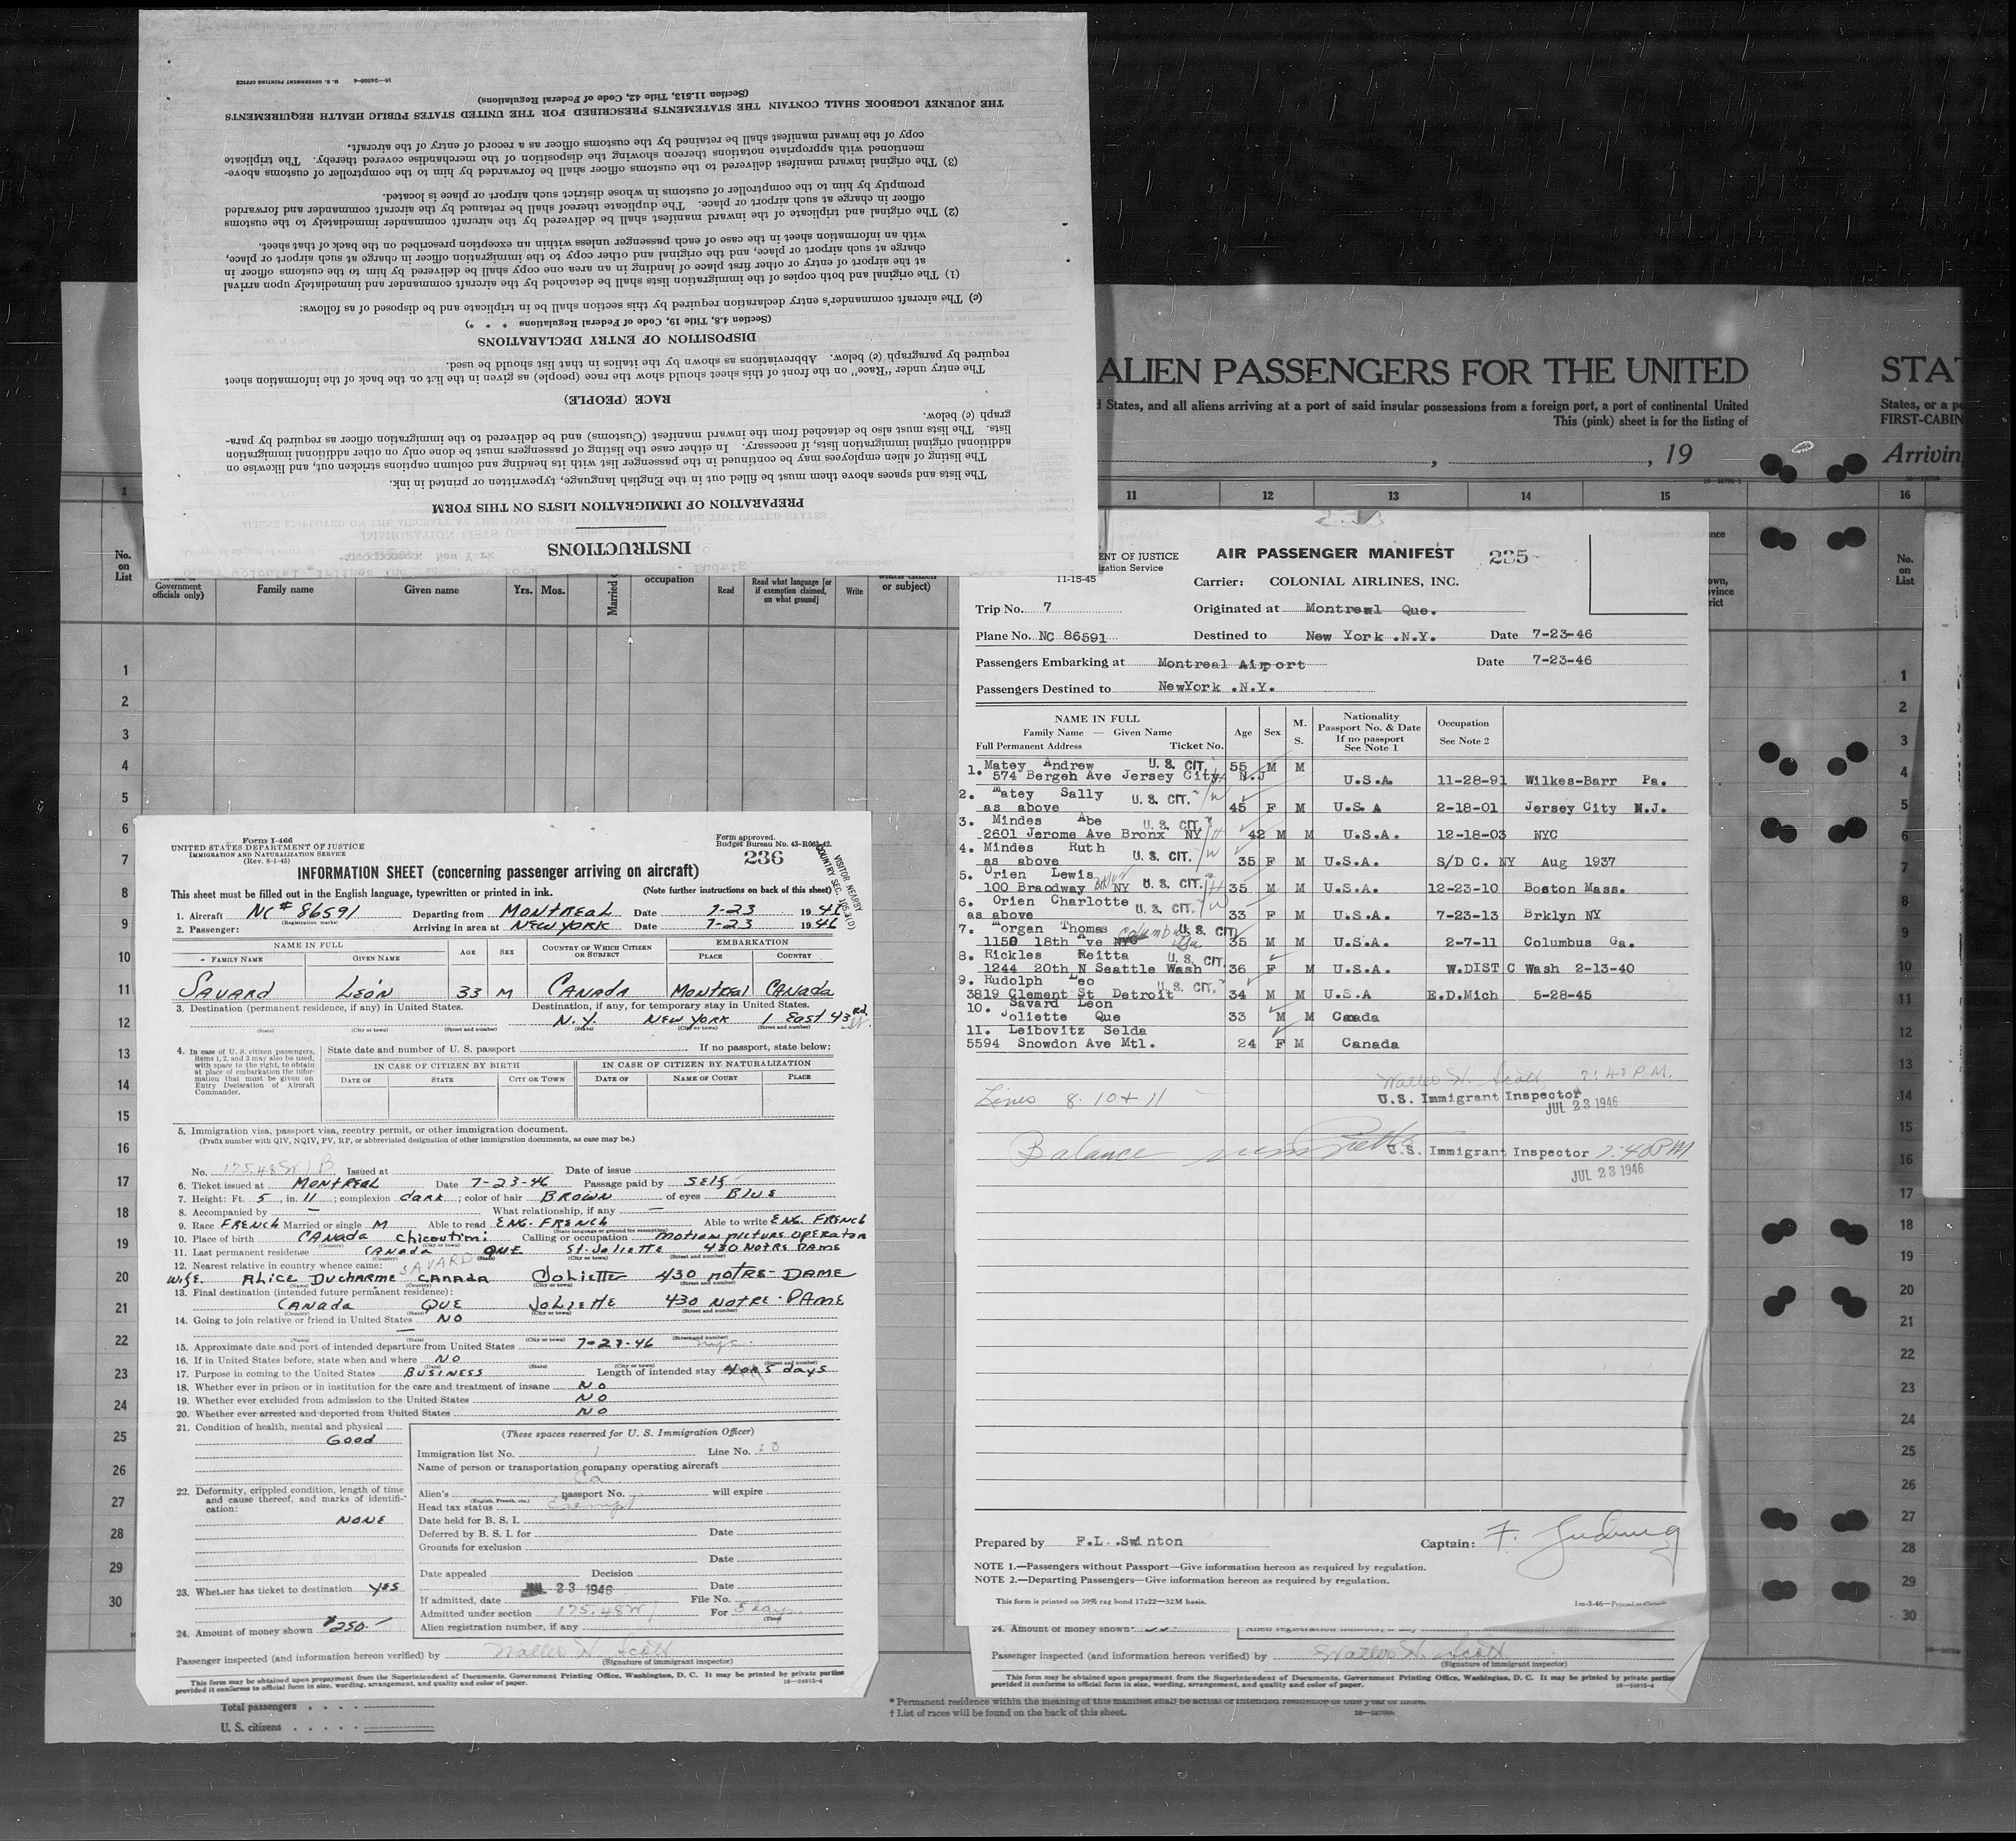 INSTRUCTIONS
PREPARATION OF IMMIGRATION LISTS ON THIS FORM
The lists and spaces above them must be filled out in the English language, typewritten or printed in ink.
The listing of alien employees may be continued in the passenger list with its heading and column captions stricken out, and likewise on
additional original immigration lists, if necessary. In either case the listing of passengers must be done only on other additional immigration
lists. The lists must also be detached from the inward manifest (Customs) and be delivered to the immigration officer as required by para-
graph (c) below.
RACE (PEOPLE)
The entry under "Race" on the front of this sheet should show the race (people) as given in the list on the back of the information sheet
required by paragraph (c) below. Abbreviations as shown by the italics in that list should be used.
DISPOSITION OF ENTRY DECLARATIONS
(Section 4.8, Title 19, Code of Federal Regulations * * *)
(c) The aircraft commander's entry declaration required by this section shall be in triplicate and be disposed of as follows:
(1) The original and both copies of the immigration lists shall be detached by the aircraft commander and immediately upon arrival
at the airport of entry or other first place of landing in an area one copy shall be delivered by him to the customs officer in
charge at such airport or place, and the original and other copy to the immigration officer in charge at such airport or place,
with an information sheet in the case of each passenger unless within an exception prescribed on the back of that sheet.
(2) The original and triplicate of the inward manifest shall be delivered by the aircraft commander immediately to the customs
officer in charge at such airport or place. The duplicate thereof shall be retained by the aircraft commander and forwarded
promptly by him to the comptroller of customs in whose district such airport or place is located.
(3) The original inward manifest delivered to the customs officer shall be forwarded by him to the comptroller of customs above-
mentioned with appropriate notations thereon showing the disposition of the merchandise covered thereby. The triplicate
copy of the inward manifest shall be retained by the customs officer as a record of entry of the aircraft.
THE JOURNEY LOGBOOK SHALL CONTAIN THE STATEMENTS PRESCRIBED FOR THE UNITED STATES PUBLIC HEALTH REQUIREMENTS
(Section 11.513, Title 42, Code of Federal Regulations)
U. S. GOVERNMENT PRINTING OFFICE 16—24508-4
ALIEN PASSENGERS FOR THE UNITED STA
States, and all aliens arriving at a port of said insular possessions from a foreign port, a port of continental United
This (pink) sheet is for the listing of
States, or a
FIRST-CABIN
, 19
Arrivin
1 11 12 13 14 15 16
No. on List
Government officials only) Family name Given name Yrs. Mos. Married occupation Read Read what language [or if exemption claimed, on what ground] Write or subject)
1
2
3
4
5
6
7
8
9
10
11
12
13
14
15
16
17
18
19
20
21
22
23
24
25
26
27
28
29
30
Form I-466
UNITED STATES DEPARTMENT OF JUSTICE
IMMIGRATION AND NATURALIZATION SERVICE
(Rev. 8-1-45)
Form approved.
Budget Bureau No. 43-R063-42.
236
VISITOR NEARBY
COUNTRY SEC.
INFORMATION SHEET (concerning passenger arriving on aircraft)
This sheet must be filled out in the English language, typewritten or printed in ink. (Note further instructions on back of this sheet)
1. Aircraft NC # 86591 Departing from MONTREAL Date 7-23 1946
(Registration marks)
2. Passenger: Arriving in area at NEW YORK Date 7-23 1946
NAME IN FULL AGE SEX COUNTRY OF WHICH CITIZEN OR SUBJECT EMBARKATION
FAMILY NAME GIVEN NAME PLACE COUNTRY
SAVARD LEON 33 M CANADA MONTREAL CANADA
3. Destination (permanent residence, if any) in United States. Destination, if any, for temporary stay in United States.
N.Y. NEW YORK 1 East 43 rd. St.
(State) (City or town) (Street and number) (State) (City or town) (Street and number)
4. In case of U. S. citizen passengers, items 1, 2, and 3 may also be used, with space to the right, to obtain at place of embarkation the information that must be given on Entry Declaration of Aircraft Commander.
State date and number of U. S. passport If no passport, state below:
IN CASE OF CITIZEN BY BIRTH IN CASE OF CITIZEN BY NATURALIZATION
DATE OF STATE CITY OR TOWN DATE OF NAME OF COURT PLACE
5. Immigration visa, passport visa, reentry permit, or other immigration document.
(Prefix number with QIV, NQIV, PV, RP, or abbreviated designation of other immigration documents, as case may be.)
No. Issued at Date of issue
6. Ticket issued at MONTREAL Date 7-23-46 Passage paid by SELF
7. Height: Ft. 5, in. 11; complexion dark; color of hair BROWN of eyes BLUE
8. Accompanied by — What relationship, if any —
9. Race FRENCH Married or single M Able to read ENG. FRENCH Able to write ENG. FRENCH
10. Place of birth CANADA Chicoutimi Calling or occupation MOTION PICTURE OPERATOR
11. Last permanent residence CANADA QUE St. Joliette 430 NOTRE DAME
12. Nearest relative in country whence came: SAVARD
WIFE ALICE DUCHARME CANADA JOLIETTE 430 NOTRE-DAME
13. Final destination (intended future permanent residence):
CANADA QUE JOLIETTE 430 NOTRE-DAME
14. Going to join relative or friend in United States NO
15. Approximate date and port of intended departure from United States 7-23-46
16. If in United States before, state when and where NO
17. Purpose in coming to the United States BUSINESS Length of intended stay 4 or 5 days
18. Whether ever in prison or in institution for the care and treatment of insane NO
19. Whether ever excluded from admission to the United States NO
20. Whether ever arrested and deported from United States NO
21. Condition of health, mental and physical
Good
22. Deformity, crippled condition, length of time and cause thereof, and marks of identification:
NONE
23. Whether has ticket to destination YES
24. Amount of money shown $250.
(These spaces reserved for U. S. Immigration Officer)
Immigration list No. 1 Line No. 10
Name of person or transportation company operating aircraft
Ca
Alien's passport No. will expire
(English, French, etc.)
Head tax status Exempt
Date held for B. S. I.
Deferred by B. S. I. for Date
Grounds for exclusion
Date
Date appealed Decision
Date
If admitted, date JUL 23 1946 File No.
Admitted under section For 5 days
(Time)
Alien registration number, if any
Passenger inspected (and information hereon verified) by Walter H. Scott
(Signature of immigrant inspector)
This form may be obtained upon prepayment from the Superintendent of Documents, Government Printing Office, Washington, D. C. It may be printed by private parties
provided it conforms to official form in size, wording, arrangement, and quality and color of paper. 16—24915-4
Total passengers . . . .
U. S. citizens . . . . .
ENT OF JUSTICE
zation Service
11-15-45
AIR PASSENGER MANIFEST 235
Carrier: COLONIAL AIRLINES, INC.
Trip No. 7 Originated at Montreal Que.
Plane No. NC 86591 Destined to New York .N.Y. Date 7-23-46
Passengers Embarking at Montreal Airport Date 7-23-46
Passengers Destined to NewYork .N.Y.
NAME IN FULL
Family Name — Given Name
Full Permanent Address Ticket No.
Age Sex M. S. Nationality Passport No. & Date If no passport See Note 1 Occupation See Note 2
1. Matey Andrew U. S. CIT. 55 M M
574 Bergen Ave Jersey City N.J U.S.A 11-28-91 Wilkes-Barr Pa.
2. Matey Sally U. S. CIT.
as above 45 F M U.S.A 2-18-01 Jersey City N.J.
3. Mindes Abe U. S. CIT.
2601 Jerome Ave Bronx NY 42 M M U.S.A. 12-18-03 NYC
4. Mindes Ruth U. S. CIT.
as above 35 F M U.S.A. S/D C. NY Aug 1937
5. Orien Lewis
100 Braodway NY U. S. CIT. 35 M M U.S.A. 12-23-10 Boston Mass.
6. Orien Charlotte U. S. CIT.
as above 33 F M U.S.A. 7-23-13 Brklyn NY
7. Morgan Thomas Columbus U. S. CIT
1150 18th Ave NYC Ga. 35 M M U.S.A. 2-7-11 Columbus Ga.
8. Rickles Reitta U. S. CIT.
1244 20th N Seattle Wash 36 F M U.S.A. W.DIST C Wash 2-13-40
9. Rudolph Leo U. S. CIT.
3819 Clement St Detroit 34 M M U.S.A E.D.Mich 5-28-45
10. Savard Leon
Joliette Que 33 M M Canada
11. Leibovitz Selda
5594 Snowdon Ave Mtl. 24 F M Canada
Walter H. Scott 7:40 P.M.
Lines 8. 10 + 11 U.S. Immigrant Inspector
JUL 23 1946
Balance U.S. Immigrant Inspector 7:40PM
JUL 23 1946
Prepared by F.L. Swinton Captain: F. Ludwig
NOTE 1.—Passengers without Passport—Give information hereon as required by regulation.
NOTE 2.—Departing Passengers—Give information hereon as required by regulation.
This form is printed on 50% rag bond 17x22—32M basis. 1m-3-46—Printed in Canada
24. Amount of money shown
Passenger inspected (and information hereon verified) by Walter H. Scott
(Signature of immigrant inspector)
This form may be obtained upon prepayment from the Superintendent of Documents, Government Printing Office, Washington, D. C. It may be printed by private parties
provided it conforms to official form in size, wording, arrangement, and quality and color of paper. 16—24915-4
* Permanent residence within the meaning of this manifest shall be actual or intended residence of one year or more.
† List of races will be found on the back of this sheet.